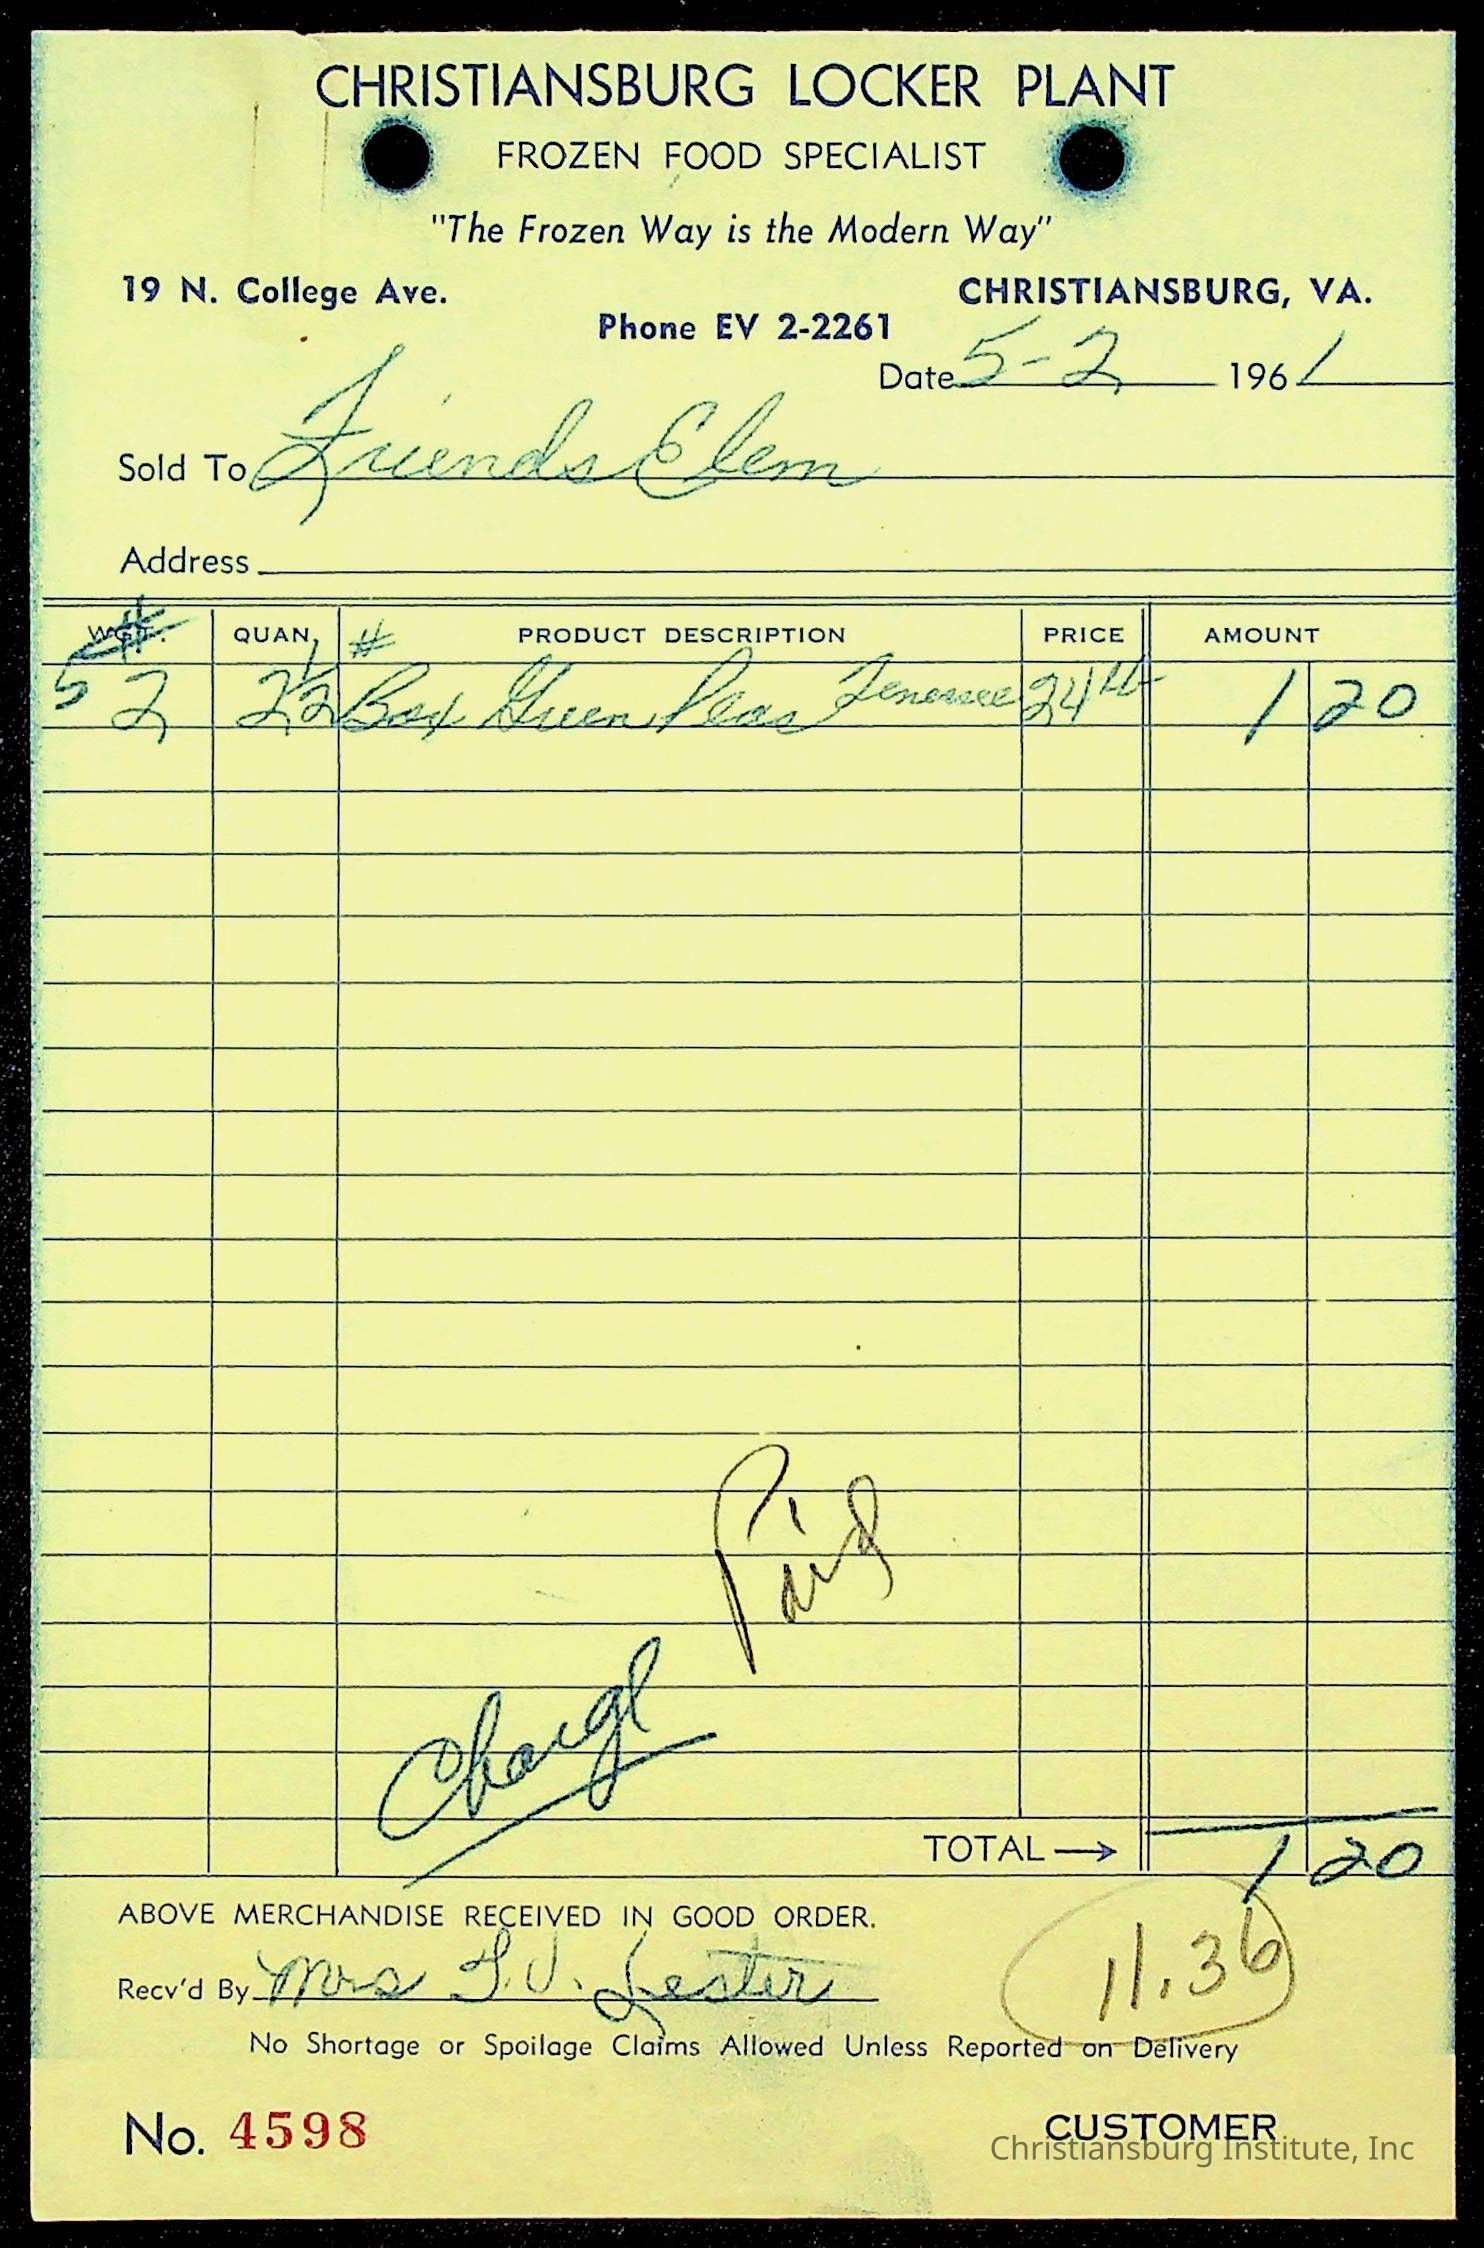 CHRISTIANSBURG LOCKER PLANT
FROZEN FOOD SPECIALIST
"The Frozen Way is the Modern Way"
19 N. College Ave. CHRISTIANSBURG, VA.
Phone EV 2-2261
Date 5-2 1961
Sold To Friends Elem
Address
WGT. # QUAN. # PRODUCT DESCRIPTION PRICE AMOUNT
5 2 2 1/2 Box Green Peas 24 lb 1 20
Paid
Charge
TOTAL → 1 20
ABOVE MERCHANDISE RECEIVED IN GOOD ORDER.
11.36
Recv'd By Mrs Lester
No Shortage or Spoilage Claims Allowed Unless Reported on Delivery
No. 4598 CUSTOMER
Christiansburg Institute, Inc